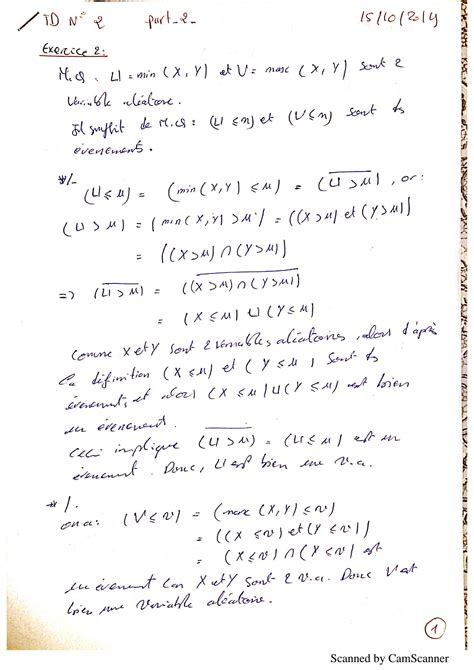 TD N° 2 part_2_ 15/10/2014
Exercice 2:
M.Q: U = min(X, Y) et V = max(X, Y) sont 2
variable aléatoire.
Il suffit de M.Q: (U ≤ u) et (V ≤ v) sont ds
évenements.
*/- (U ≤ u) = (min(X,Y) ≤ u) = (\overline{U > u}), or:
(U > u) = (min(X,Y) > u) = ((X > u) et (Y > u))
= ((X > u) ∩ (Y > u))
=> (\overline{U > u}) = (\overline{(X > u) ∩ (Y > u)})
= (X ≤ u) ∪ (Y ≤ u)
Comme X et Y sont 2 variables aléatoires, alors d'après
la définition (X ≤ u) et (Y ≤ u) sont ds
évenements, et alors (X ≤ u) ∪ (Y ≤ u) est bien
un évenement.
Celà implique (\overline{U > u}) = (U ≤ u) est un
évenement. Donc, U est bien une v.a.
*/.
on a: (V ≤ v) = (max(X, Y) ≤ v)
= ((X ≤ v) et (Y ≤ v))
= (X ≤ v) ∩ (Y ≤ v) est
un évenement car X et Y sont 2 v.a. Donc V est
bien une variable aléatoire.
1
Scanned by CamScanner